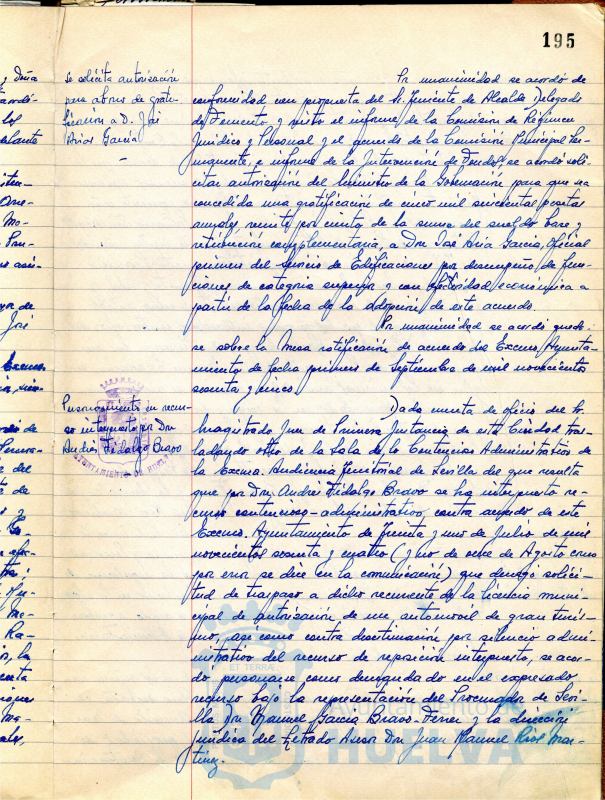 195
Se solicita autorización
para abono de grati-
ficación a D. José
Ariza García
Por unanimidad se acordó de
conformidad con propuesta del Sr. Teniente de Alcalde Delegado
de Fomento, y visto el informe de la Comisión de Régimen
Jurídico y Personal y el acuerdo de la Comisión Municipal Per-
manente, e informe de la Intervención de Fondos, se acordó soli-
citar autorización del Ministro de la Gobernación para que sea
concedida una gratificación de cinco mil pesetas
anuales, veinte por ciento de la suma del sueldo base y
retribución complementaria, a Don José García, Oficial
primero del Servicio de Edificaciones por desempeño de fun-
ciones de categoría superior y con efectividad económica a
partir de la fecha de la adopción de este acuerdo.
Por unanimidad se acordó quede-
se sobre la Mesa ratificación de acuerdo del Excmo. Ayunta-
miento de fecha primero de Septiembre de mil novecientos
sesenta y cinco.
Personamiento en recur-
so interpuesto por Don
Andrés Fidalgo Bravo
AYUNTAMIENTO DE HUELVA
Dada cuenta de oficio del Sr.
Magistrado Juez de Primera Instancia de esta Ciudad tras-
ladando otro de la Sala de lo Contencioso Administrativo de
la Excma. Audiencia Territorial de Sevilla del que resulta
que por Don Andrés Fidalgo Bravo se ha interpuesto re-
curso contencioso-administrativo, contra acuerdo de este
Excmo. Ayuntamiento de treinta y uno de Julio de mil
novecientos sesenta y cuatro (y no de once de Agosto como
por error se dice en la comunicación) que denegó solici-
tud de traspaso a dicho recurrente de la licencia muni-
cipal de autorización de un automóvil de gran turis-
mo, así como contra desestimación por silencio admi-
nistrativo del recurso de reposición interpuesto, se acor-
dó personarse como demandado en el expresado
recurso bajo la representación del Procurador de Sevi-
lla Don Manuel García Bravo-Ferrer y la dirección
jurídica del Letrado Asesor Don Juan Manuel Ríos Mar-
tínez.
ET TERRA
Ayuntamiento
HUELVA